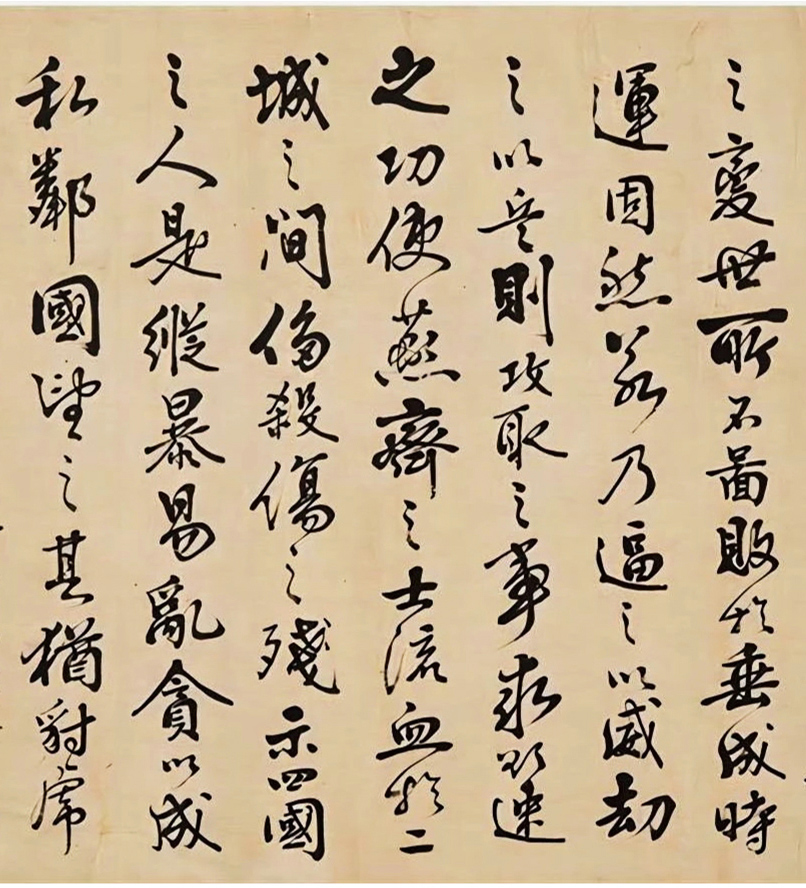 之變世所不圖敗於垂成時
運固然若乃逼之以威劫
之以兵則攻取之事求欲速
之功使燕齊之士流血於二
城之間侈殺傷之殘示四國
之人是縱暴易亂貪以成
私鄰國望之其猶豺虎